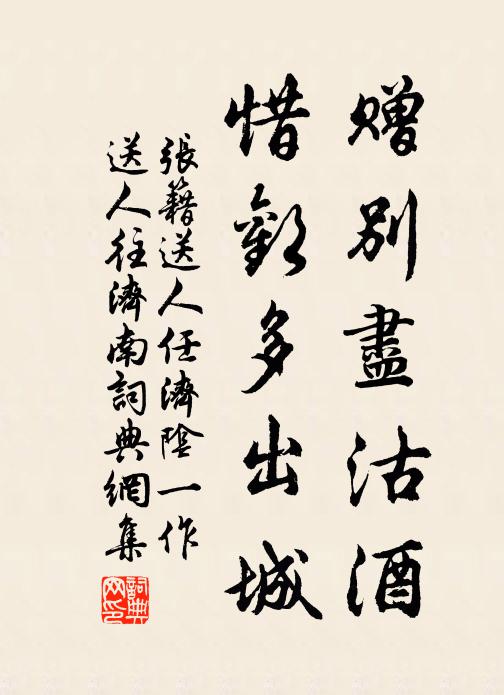 赠别盡沽酒
惜歡多出城
張籍送人任濟陰一作
送人往濟南詞典網集
詞典网印